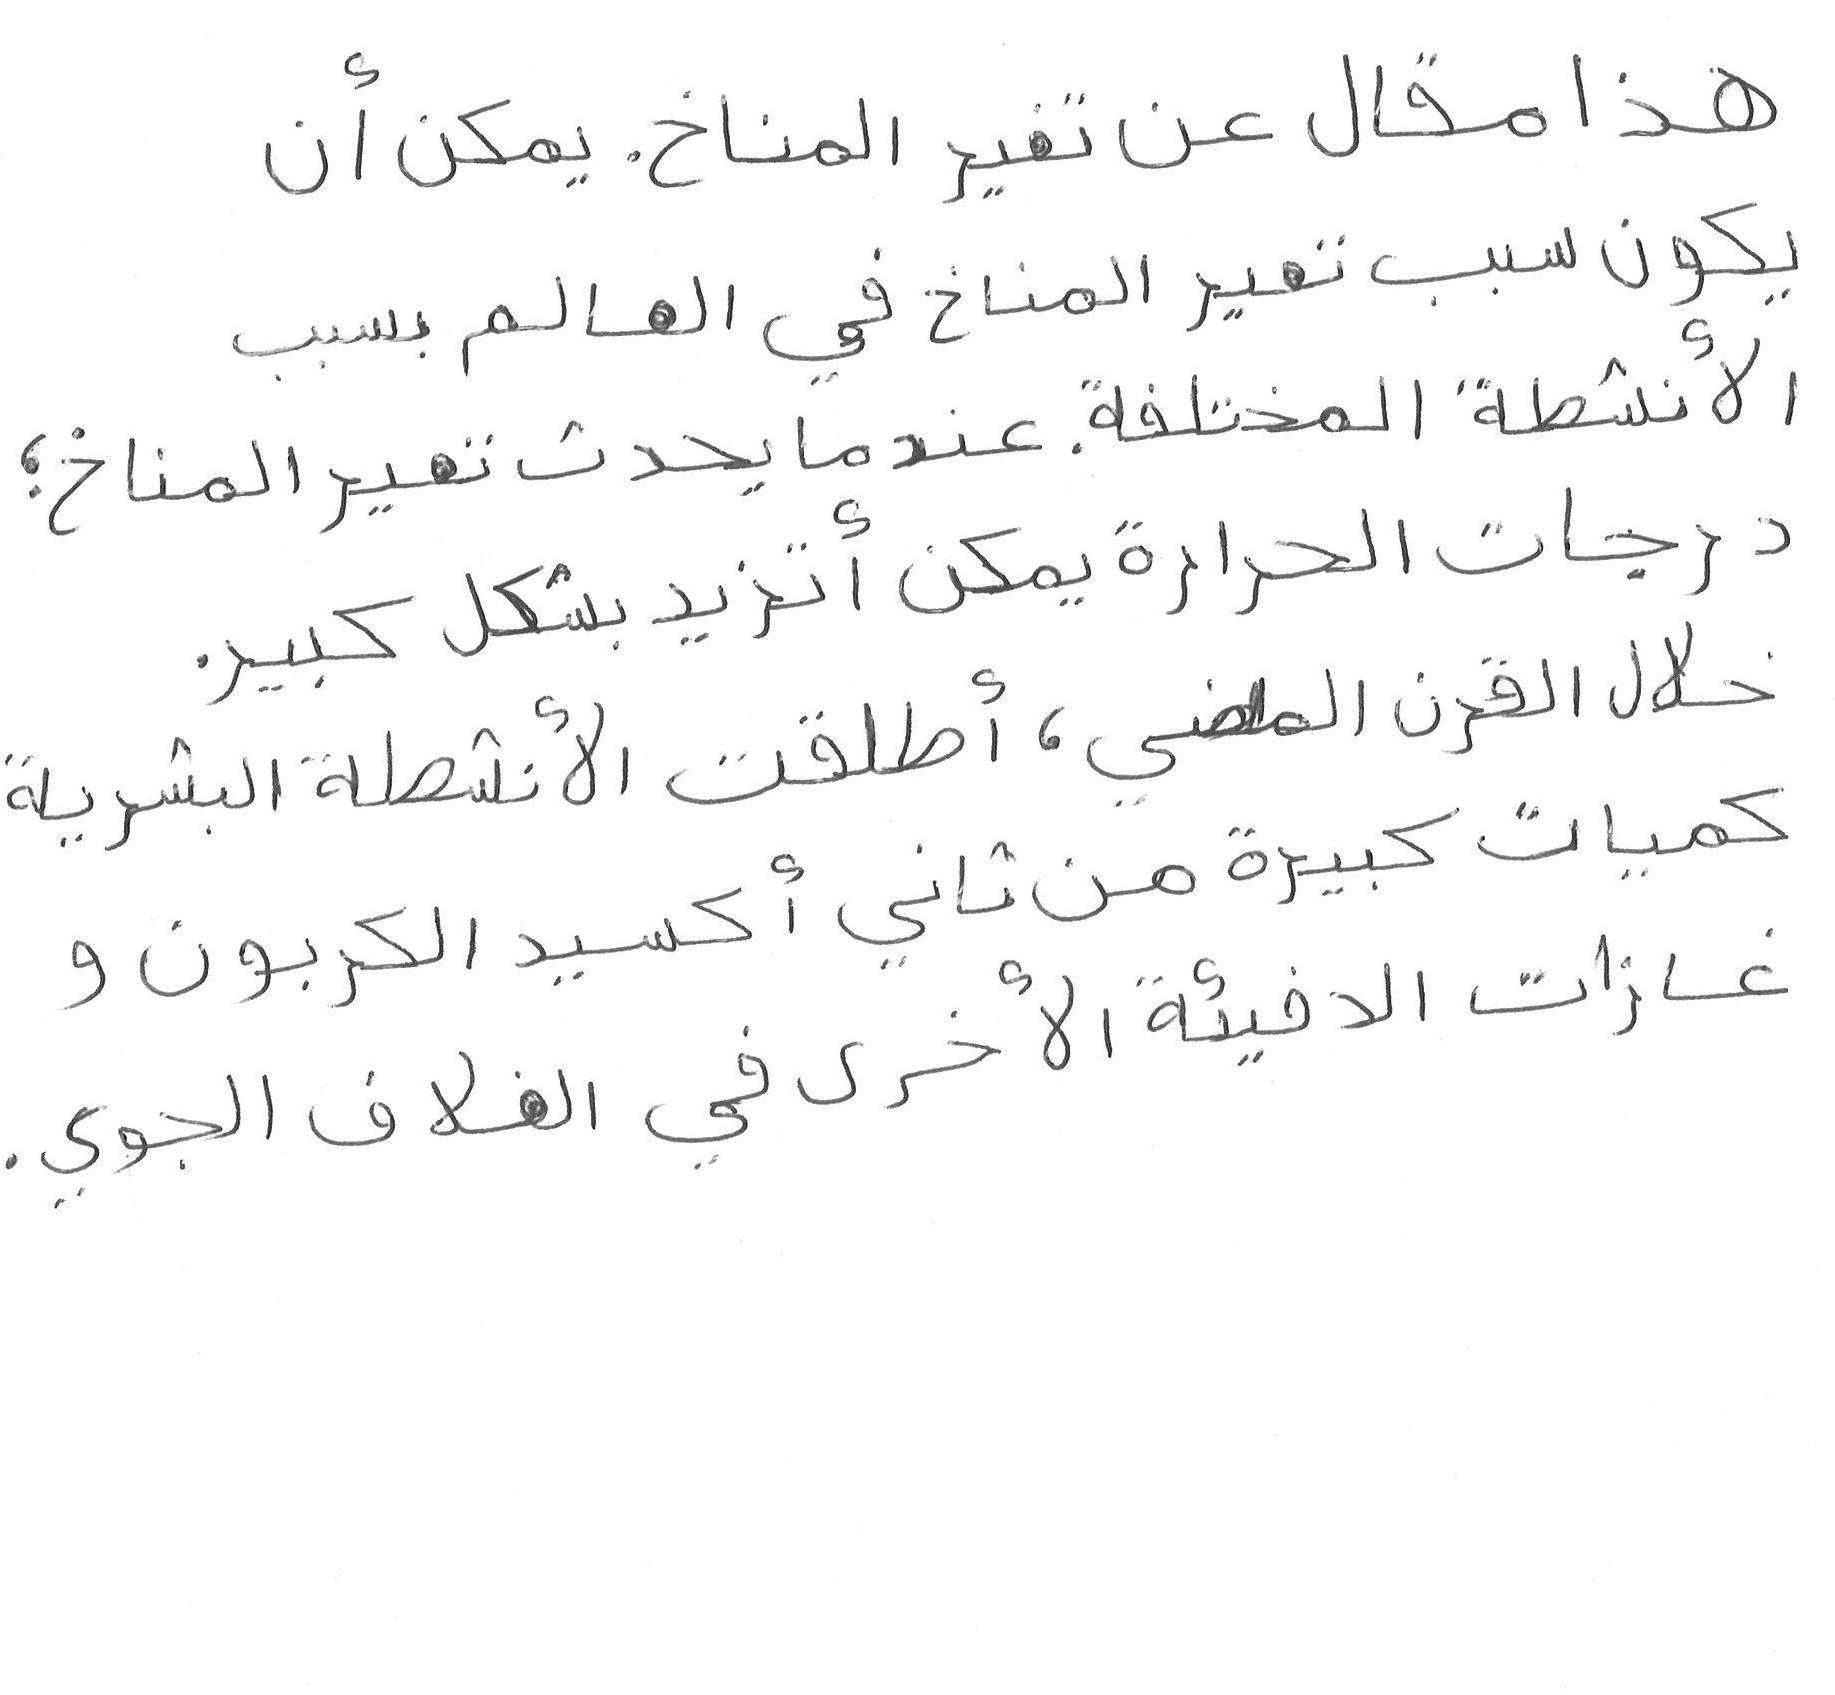 هذا مقال عن تغير المناخ. يمكن أن
يكون سبب تغير المناخ في العالم بسبب
الأنشطة المختلفة. عندما يحدث تغير المناخ؛
درجات الحرارة يمكن أتزيد بشكل كبير.
خلال القرن الماضي، أطلقت الأنشطة البشرية
كميات كبيرة من ثاني أكسيد الكربون و
غازات الدفيئة الأخرى في الغلاف الجوي.